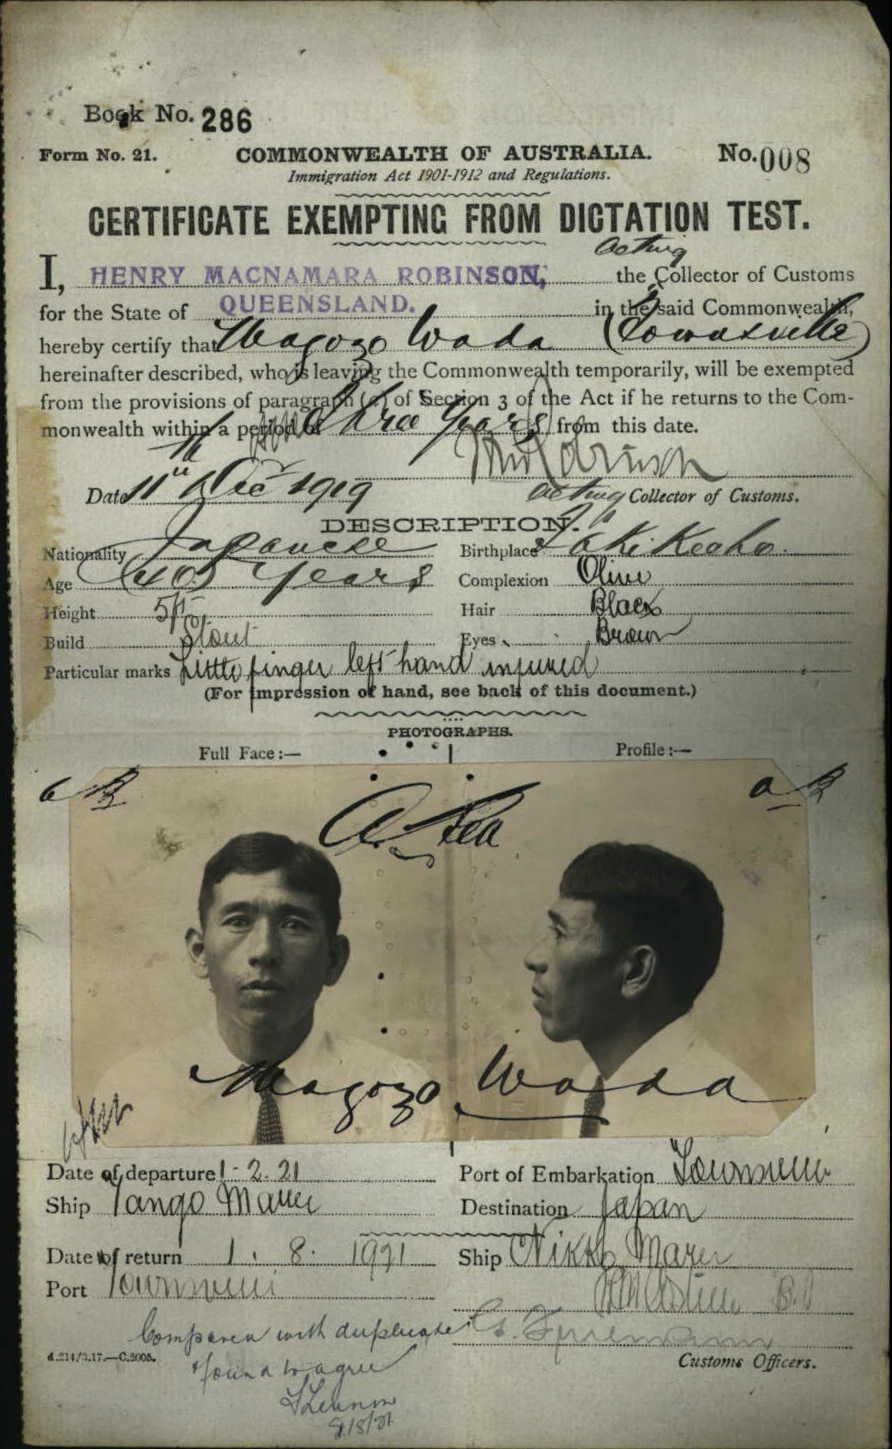 Book No. 286
Form No. 21. COMMONWEALTH OF AUSTRALIA. No. 008
Immigration Act 1901-1912 and Regulations.
CERTIFICATE EXEMPTING FROM DICTATION TEST.
acting
I, HENRY MACNAMARA ROBINSON, the Collector of Customs
for the State of QUEENSLAND. in the said Commonwealth,
hereby certify that Magozo Wada (Townsville)
hereinafter described, who is leaving the Commonwealth temporarily, will be exempted
from the provisions of paragraph (a) of Section 3 of the Act if he returns to the Com-
monwealth within a period of Three Years from this date.
Date 11th Dec 1919 acting Collector of Customs.
DESCRIPTION.
Nationality Japanese Birthplace
Age 40 Years Complexion Olive
Height 5ft Hair Black
Build Stout Eyes Brown
Particular marks Little finger left hand injured
(For impression of hand, see back of this document.)
PHOTOGRAPHS.
Full Face:— Profile:—
Magozo Wada
Date of departure 1-2.21 Port of Embarkation Townsville
Ship Tango Maru Destination Japan
Date of return 1. 8. 1921 Ship Nikko Maru
Port Townsville
Compared with duplicate
& found to agree
8/8/21
Customs Officers.